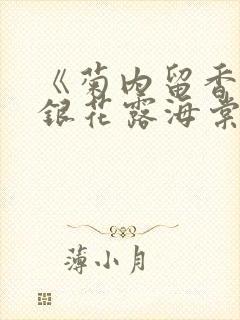 《菊内留香
银花露海棠
薄小月